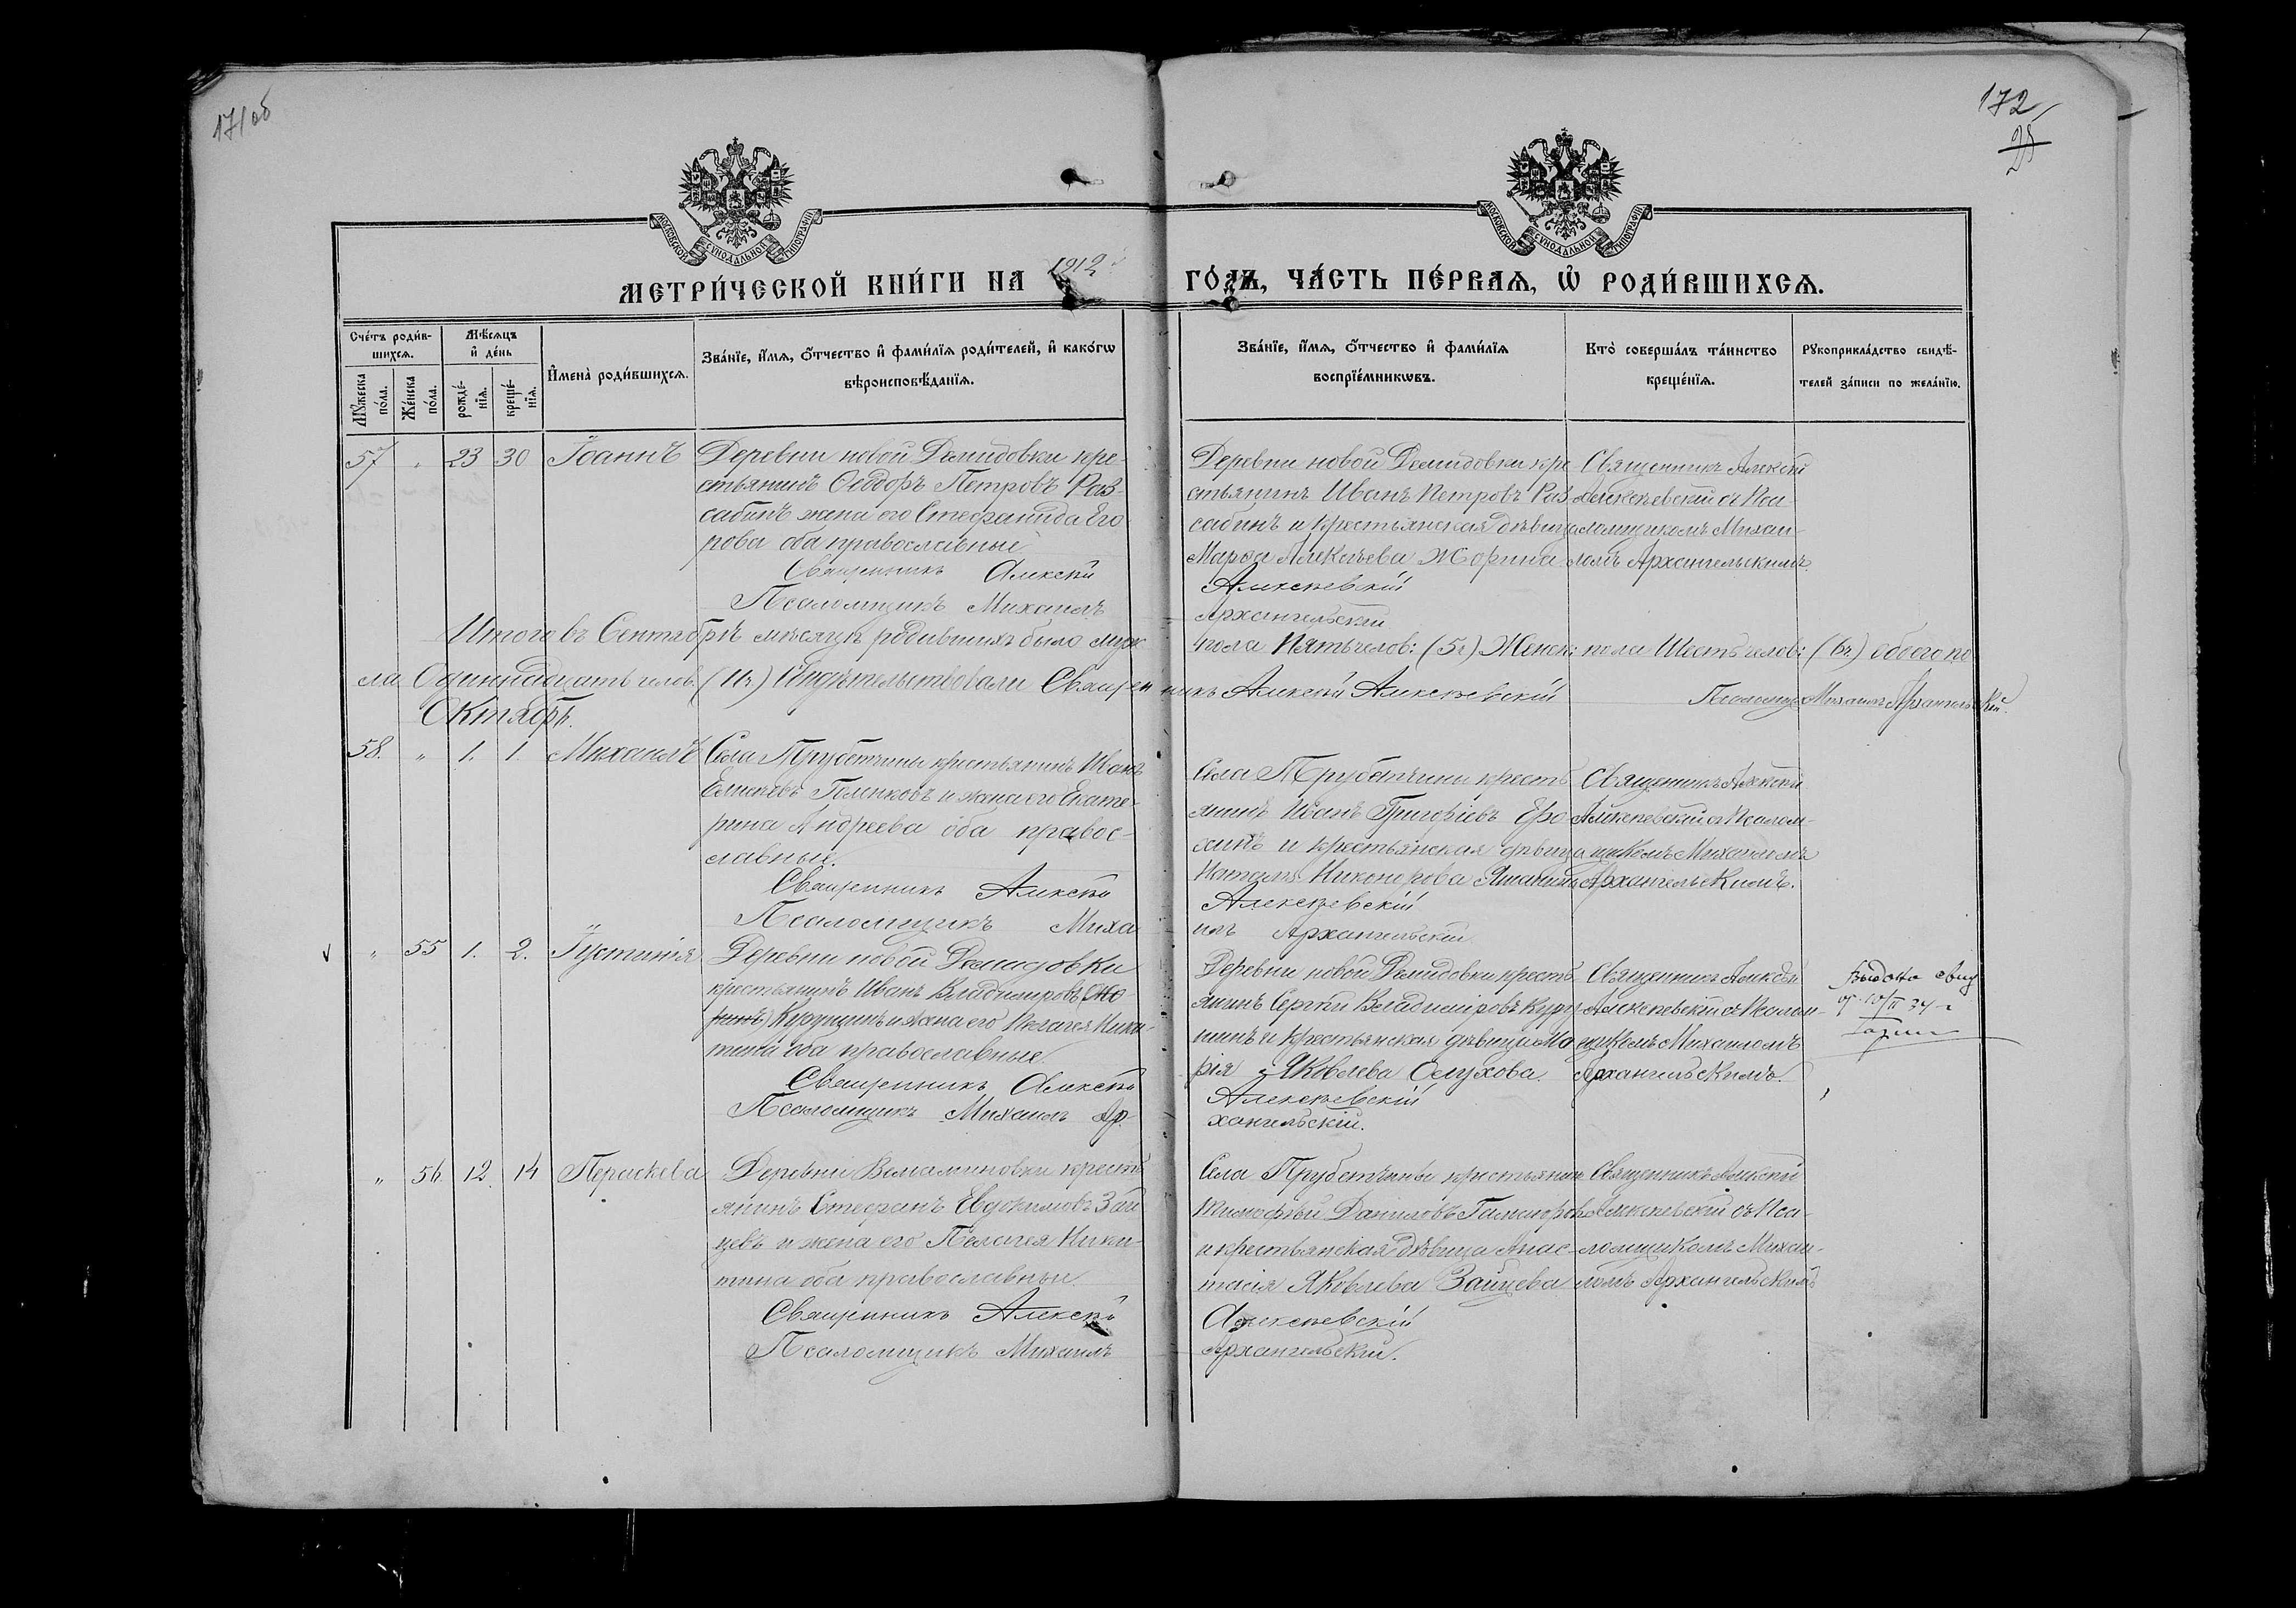 171об
172
25
МОСКОВСКОЙ СѴНОДАЛЬНОЙ ТИПОГРАФІИ
МОСКОВСКОЙ СѴНОДАЛЬНОЙ ТИПОГРАФІИ
МЕТРИ́ЧЕСКОЙ КНИ́ГИ НА 1912 ГО́ДЪ, ЧА́СТЬ ПЕ́РВАѦ, Ѡ҆ РОДИ́ВШИХСѦ.
Сче́тъ роди́в-
шихсѧ.
Мѣ́сѧцъ
и҆ де́нь
Мꙋ́жеска
по́ла.
Же́нска
по́ла.
рожде́-
нїѧ.
креще́-
нїѧ.
И҆мена̀ роди́вшихсѧ.
Зва́нїе, и҆́мѧ, ѻ҆́тчество и҆ фами́лїѧ роди́телей, и҆ како́гѡ
вѣроисповѣ́данїѧ.
Зва́нїе, и҆́мѧ, ѻ҆́тчество и҆ фами́лїѧ
воспрїе́мникѡвъ.
Кто̀ соверша́лъ та́инство
креще́нїѧ.
Рꙋкоприкла́дство свидѣ́-
телей за́писи по жела́нїю.
57 " 23 30 Іоаннъ
Деревни новой Демидовки кре-
стьянинъ Ѳеодоръ Петровъ Раз-
сабинъ жена его Стефанида Его-
рова оба православные
Священникъ Алексѣй
Псаломщикъ Михаилъ
Деревни новой Демидовки кре
стьянинъ Иванъ Петровъ Раз-
сабинъ и крестьянская дѣвица
Марѳа Алексѣева Жорина
Алексѣевскій
Архангельскій
Священникъ Алексѣй
Алексѣевскій съ Пса-
ломщикомъ Михаи-
ломъ Архангельскимъ.
Итого въ Сентябрѣ мѣсяцѣ родившихъ было муж. пола Пять челов: (5ч) Женск: пола Шесть челов: (6ч.) обоего по
ла Одиннадцать челов. (11ч.) Свидѣтельствовали Священникъ Алексѣй Алексѣевскій Псаломщ. Михаилъ Архангельскій.
Октябрь.
58. " 1. 1. Михаилъ
Села Трубетчины крестьянинъ Иванъ
Елисеевъ и жена его Екате-
рина Андреева оба правос-
лавные.
Священникъ Алексѣй
Псаломщикъ Миха
Села Трубетчины кресть
янинъ Иванъ Григорьевъ Еро-
хинъ и крестьянская дѣвица
Никонорова
Алексѣевскій
илъ Архангельскій
Священникъ Алексѣй
Алексѣевскій съ Псалом-
щикомъ Михаиломъ
Архангельскимъ.
" 55 1. 2. Іустинія
Деревни новой Демидовки
крестьянинъ Иванъ Владиміровъ (Жо
ринъ) Курушинъ и жена его Пелагея Ники-
тина оба православные.
Священникъ Алексѣй
Псаломщикъ Михаилъ Ар-
Деревни новой Демидовки кресть
янинъ Сергѣй Владиміровъ Куру
шинъ и крестьянская дѣвица Ма
рія Яковлева Слухова.
Алексѣевскій
хангельскій.
Священникъ Алексѣй
Алексѣевскій съ Псалом-
щикомъ Михаиломъ
Архангельскимъ.
Выдано
10/II 34 г
" 56 12. 14 Параскева
Деревни Вельяминовки кресть
янинъ Стефанъ Евдокимовъ Зай
цевъ и жена его Пелагея Ники-
тина оба православные
Священникъ Алексѣй
Псаломщикъ Михаилъ
Села Трубетчины крестьянинъ
Тимофѣй Даниловъ
и крестьянская дѣвица Анас-
тасія Яковлева Зайцева
Алексѣевскій
Архангельскій.
Священникъ Алексѣй
Алексѣевскій съ Пса-
ломщикомъ Михаи-
ломъ Архангельскимъ